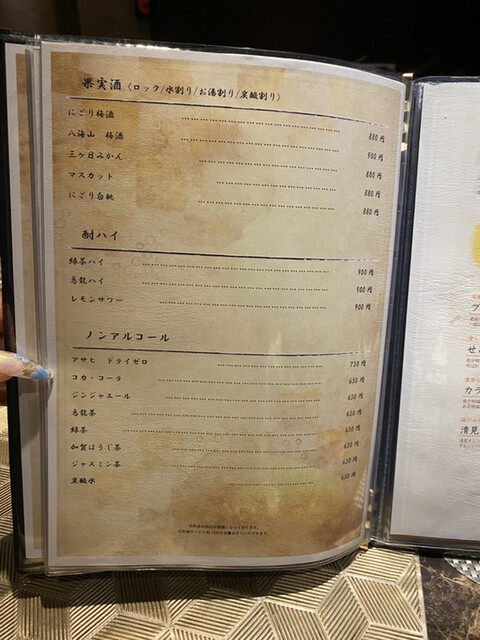 果実酒〈ロック/水割り/お湯割り/炭酸割り〉
にごり梅酒 880円
八海山 梅酒 900円
三ケ日みかん 880円
マスカット 880円
にごり白桃 880円
酎ハイ
緑茶ハイ 900円
烏龍ハイ 900円
レモンサワー 900円
ノンアルコール
アサヒ ドライゼロ 750円
コカ・コーラ 650円
ジンジャエール 650円
烏龍茶 650円
緑茶 650円
加賀ほうじ茶 650円
ジャスミン茶 650円
炭酸水 650円
カラ
清見